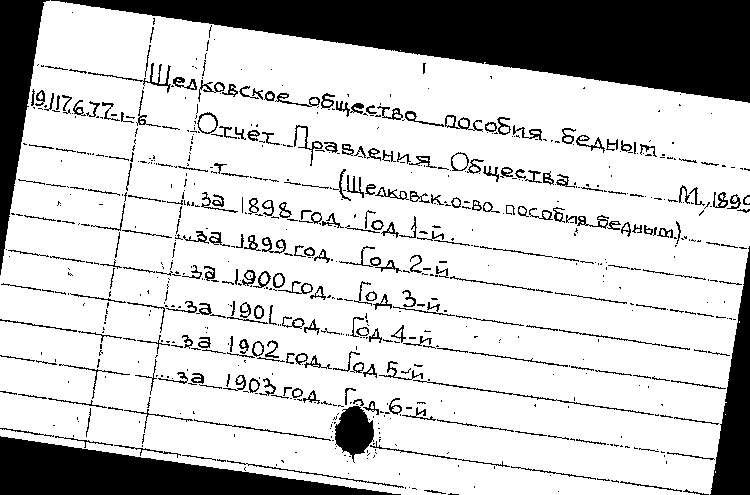 Щелковское общество пособия бедным.
19.117.6.77-1-6
Отчёт Правления Общества...
М., 1899
(Щелковск. о-во пособия бедным).
...за 1898 год. Год 1-й.
...за 1899 год Год 2-й.
...за 1900 год. Год 3-й.
...за 1901 год. Год 4-й.
...за 1902 год. Год 5-й.
...за 1903 год. Год 6-й.